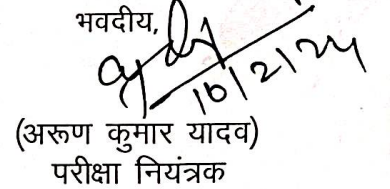 भवदीय,
10/2/24
(अरूण कुमार यादव)
परीक्षा नियंत्रक